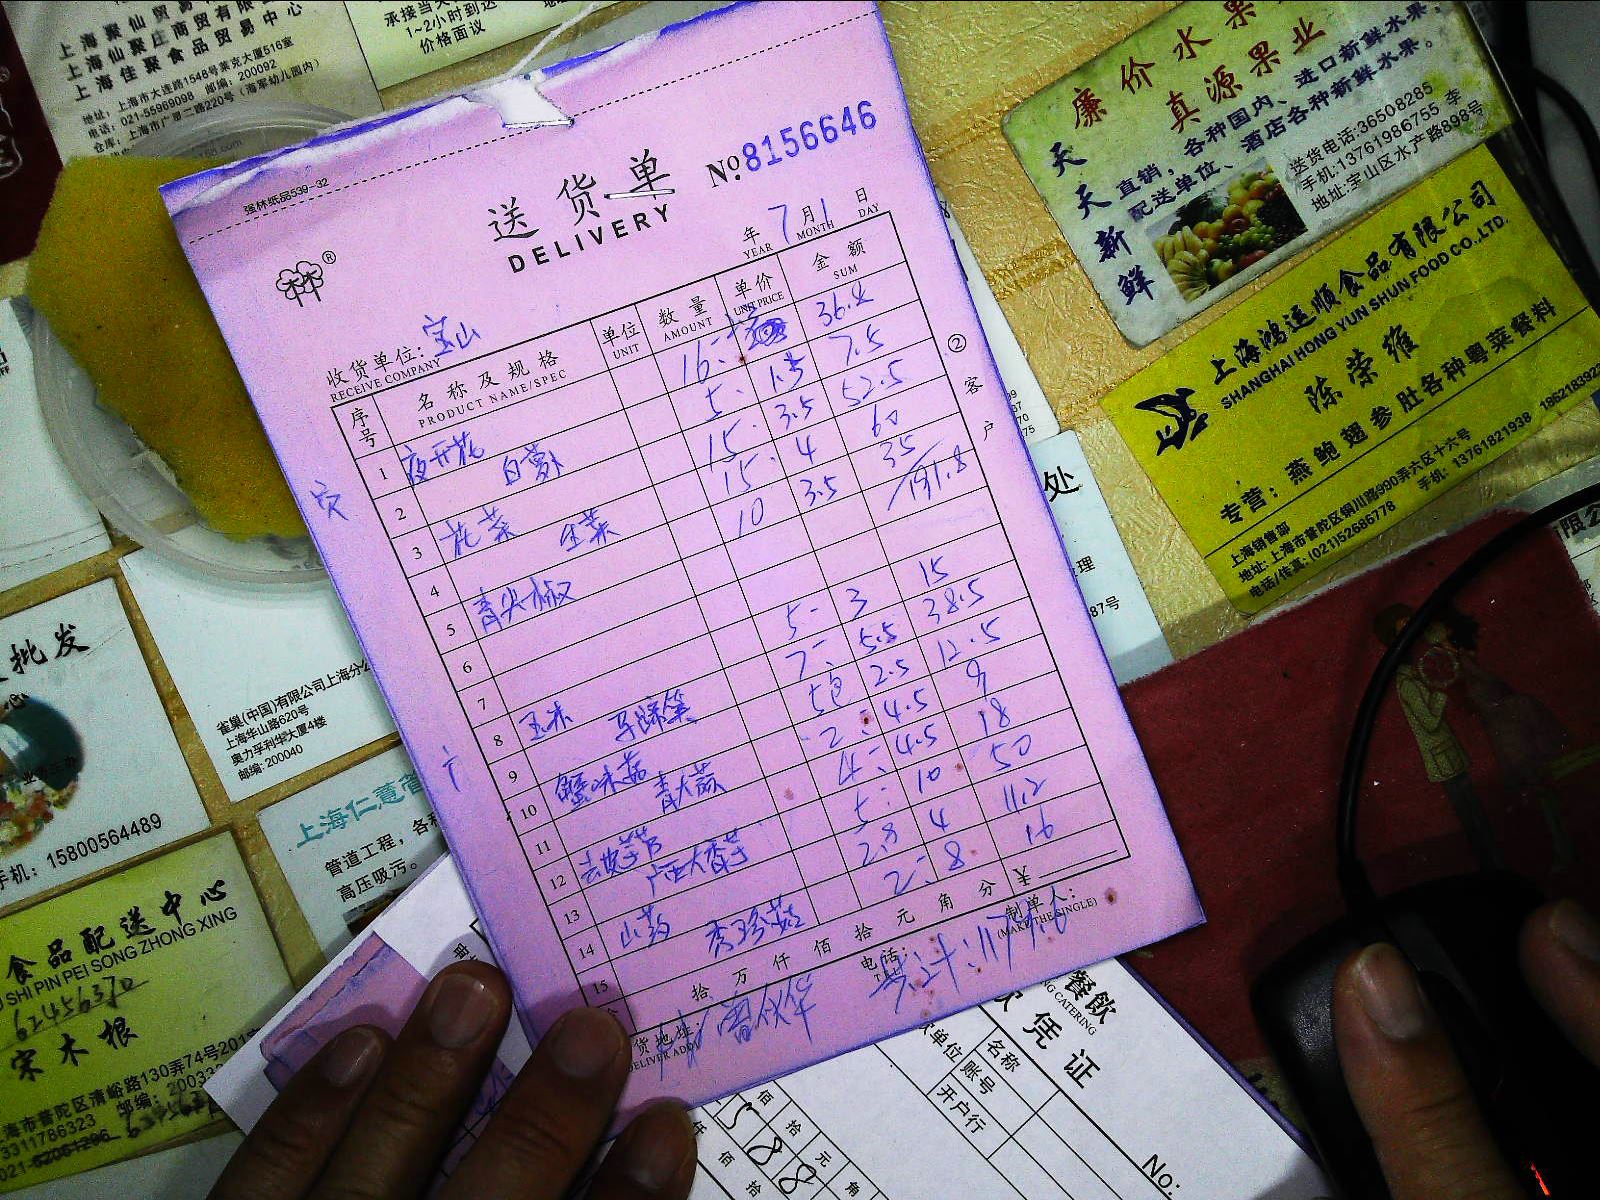 上海仙聚庄商贸有限公司
上海佳聚食品贸易中心
地址:上海市大连路1548号莱克大厦516室
电话:021-55969098 邮编:200092
仓库:上海市广粤二路220号(海军幼儿园内)
承接当天
1~2小时到达
价格面议
强林纸品539-32
送货单
DELIVERY
No. 8156646
年 7 月 1 日
YEAR MONTH DAY
收货单位: 宝山
RECEIVE COMPANY
序号 名称及规格 单位 数量 单价 金额
PRODUCT NAME/SPEC UNIT AMOUNT UNIT PRICE SUM
1 夜开花 16. 36.4
2 白萝卜 5. 1.5 7.5
3 花菜 15. 3.5 52.5
4 生菜 15. 4 60
5 青尖椒 10 3.5 35
6 191.8
7
8 玉米 5. 3 15
9 马蹄笋 7. 5.5 38.5
10 蟹味菇 5包 2.5 12.5
11 青大蒜 2. 4.5 9
12 去皮芋艿 4. 4.5 18
13 广西大香芋 5. 10 50
14 山药 2.8 4 11.2
15 秀珍菇 2. 8 16
拾 万 仟 佰 拾 元 角 分 ¥
② 客户
货地址:
DELIVER ADD
电话:
TEL
制单人:
(MAKE THE SINGLE)
廉价水果
真源果业
天天新鲜
直销,各种国内、进口新鲜水果,
配送单位、酒店各种新鲜水果。
送货电话:36508285
手机:13761986755 李
地址:宝山区水产路898号
上海鸿运顺食品有限公司
SHANGHAI HONG YUN SHUN FOOD CO.,LTD.
陈荣雍
专营:燕鲍翅参肚各种粤菜餐料
上海销售部
地址:上海市普陀区铜川路990弄六区十六号
电话/传真:(021)52686778 手机:13761821938 1862183923
处
理
87号
批发
手机:15800564489
雀巢(中国)有限公司上海分公
上海华山路620号
奥力孚利华大厦4楼
邮编:200040
上海仁薏管
管道工程,各种
高压吸污。
食品配送中心
SHI PIN PEI SONG ZHONG XING
62456370
宋木根
海市普陀区清峪路130弄74号201
邮编:20033
13311786323
餐饮
NG CATERING
款凭证
款单位
名称
账号
开户行
No:
佰 拾 元 角
5 8 8